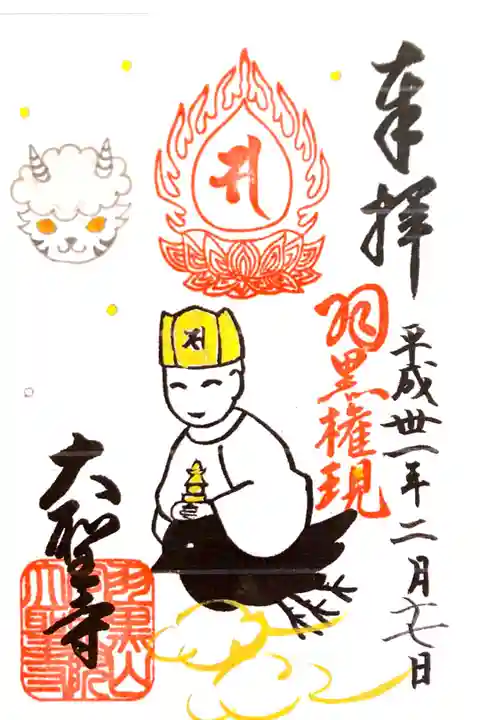 奉拝
平成丗一年二月十七日
羽黒権現
大聖寺
羽黒山
院
大聖寺